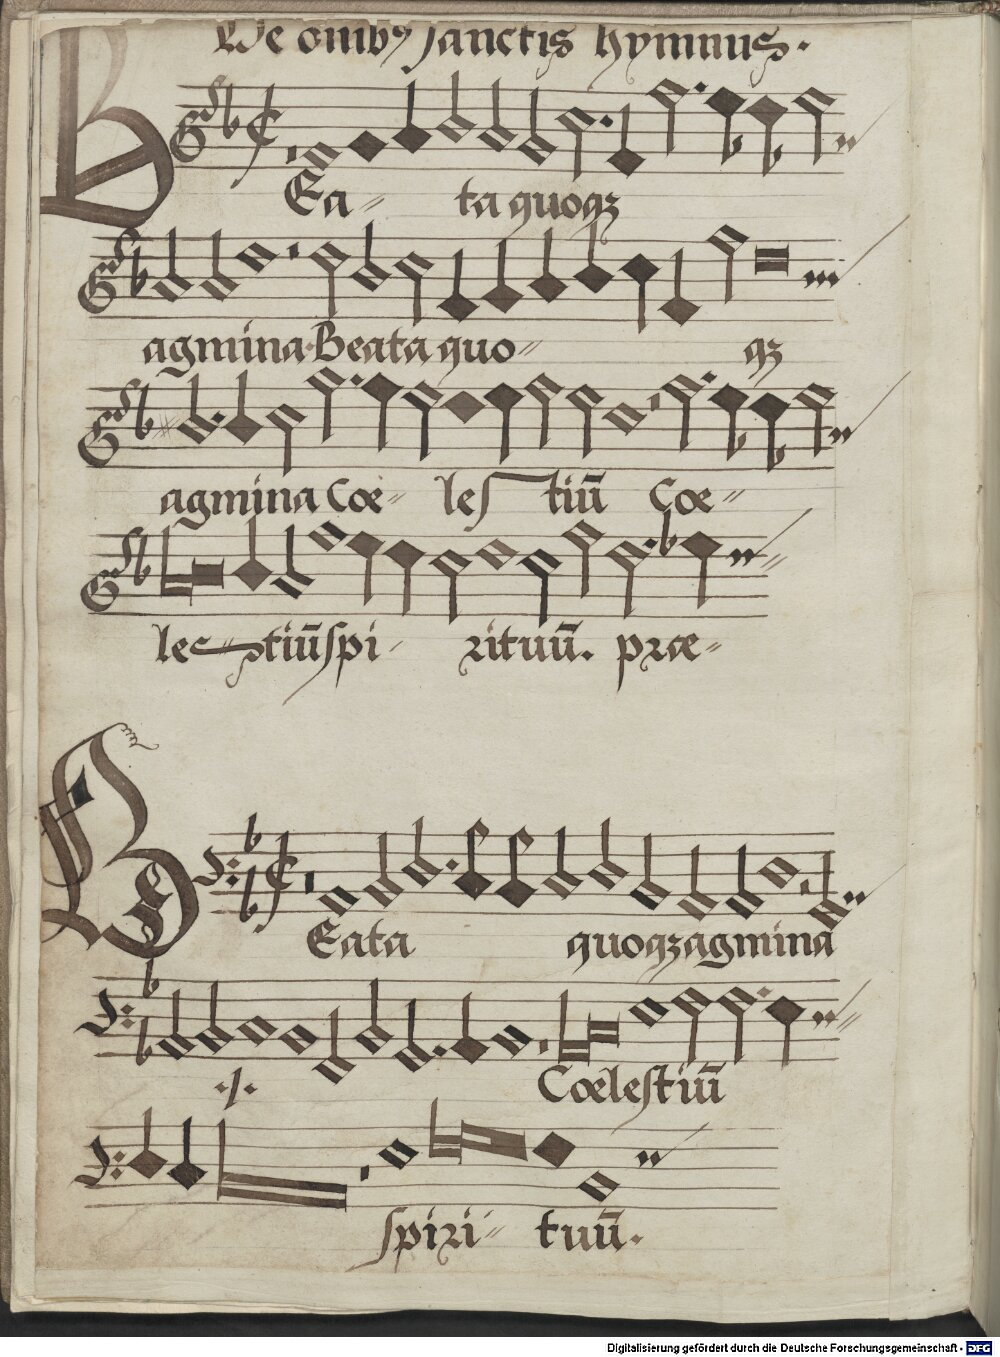 De omibꝰ sanctis hymnus.
BEa- ta quoqꝫ
agmina. Beata quo- qꝫ
agmina Cœ- les tiū Cœ-
lestiū spi- rituū. præ-
BEata quoqꝫ agmina
./. Cœlestiū
spiri- tuū.
Digitalisierung gefördert durch die Deutsche Forschungsgemeinschaft - DFG